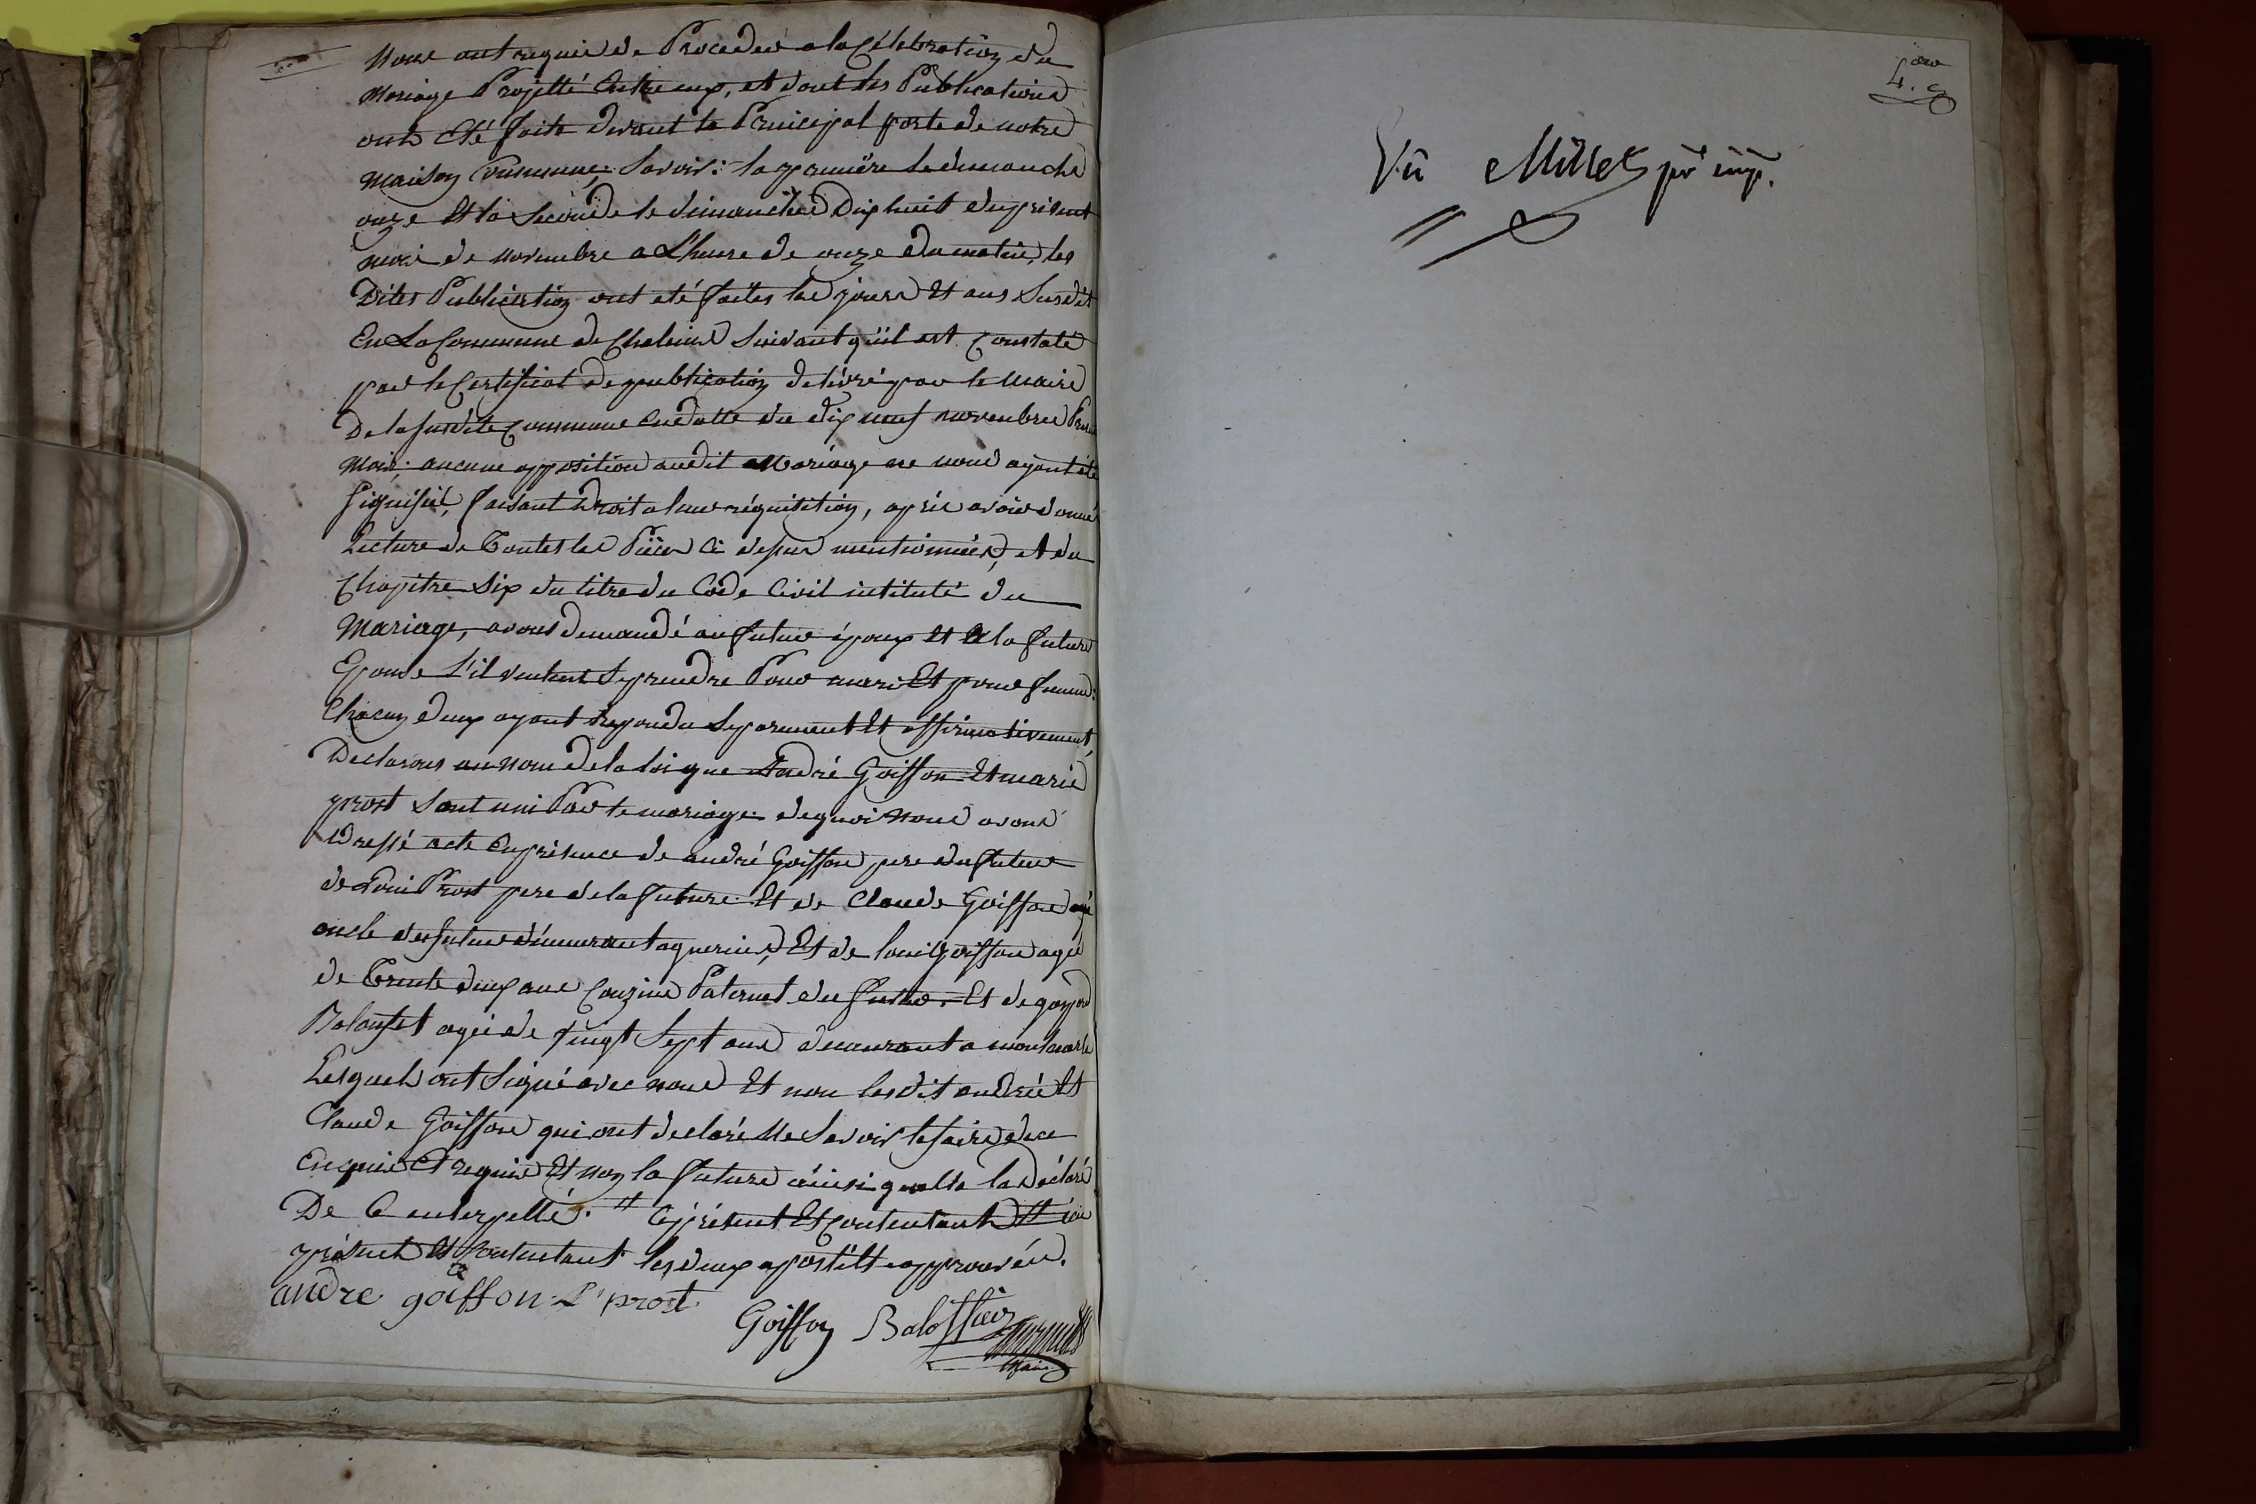 Nous ont requis de Proceder a la Célébration du
Mariage Projetté Entre eux, et dont les Publications
ont Eté faite devant la Principal porte de notre
Maison Commune, Savoir: la premiere le dimanche
onze Et la Seconde le dimanche Dix huit du present
mois de novembre a L'heure de onze du matin, les
Dites Publication ont eté faites les jours Et ans Susdit
En La Commune de Chaleins Suivant qu'il est Constaté
par le Certificat de publication delivré par le Maire
De la Susdite Commune en datte du dix neuf novembre
Mois; aucune opposition audit Mariage ne nous ayant été
Signifié, faisant Droit a leur réquisition, après avoir donné
Lecture de Toutes les Pièces Ci dessus mentionnées, et du
Chapitre Six du titre du Code Civil intitulé du
Mariage, avons demandé au futur époux Et a la future
Epouse S'il veulent Se prendre Pour mari Et pour femme:
Chacun d'eux ayant repondu Separement Et affirmativement,
Declarons au nom de la loi que André Goiffon Et marie
prost Sont uni Par le mariage: de quoi Nous avons
Dressé acte En présence de andré Goiffon pere du futur
de Louis Prost pere de la future Et de Claude Goiffon agé
oncle du futur démeurant a guerins, Et de louis Goiffon agé
de Trente deux ans Couzins Paternel du futur. Et de gaspard
agé de Vingt Sept ans demeurant a
Lesquels ont Signé avec nous Et non lesdit andrée Et
Claude Goiffon qui ont declaré Ne Savoir le faire de ce
Enquis Et requis Et non la future ainsi quelle la Déclaré
De Ce enterpellé. // Ci présent Et Contentant // ici
présent Et Contentant les deux apostille approuvée.
andre goiffon L prost
Goiffon
Maire
Vû Millet pr imp.